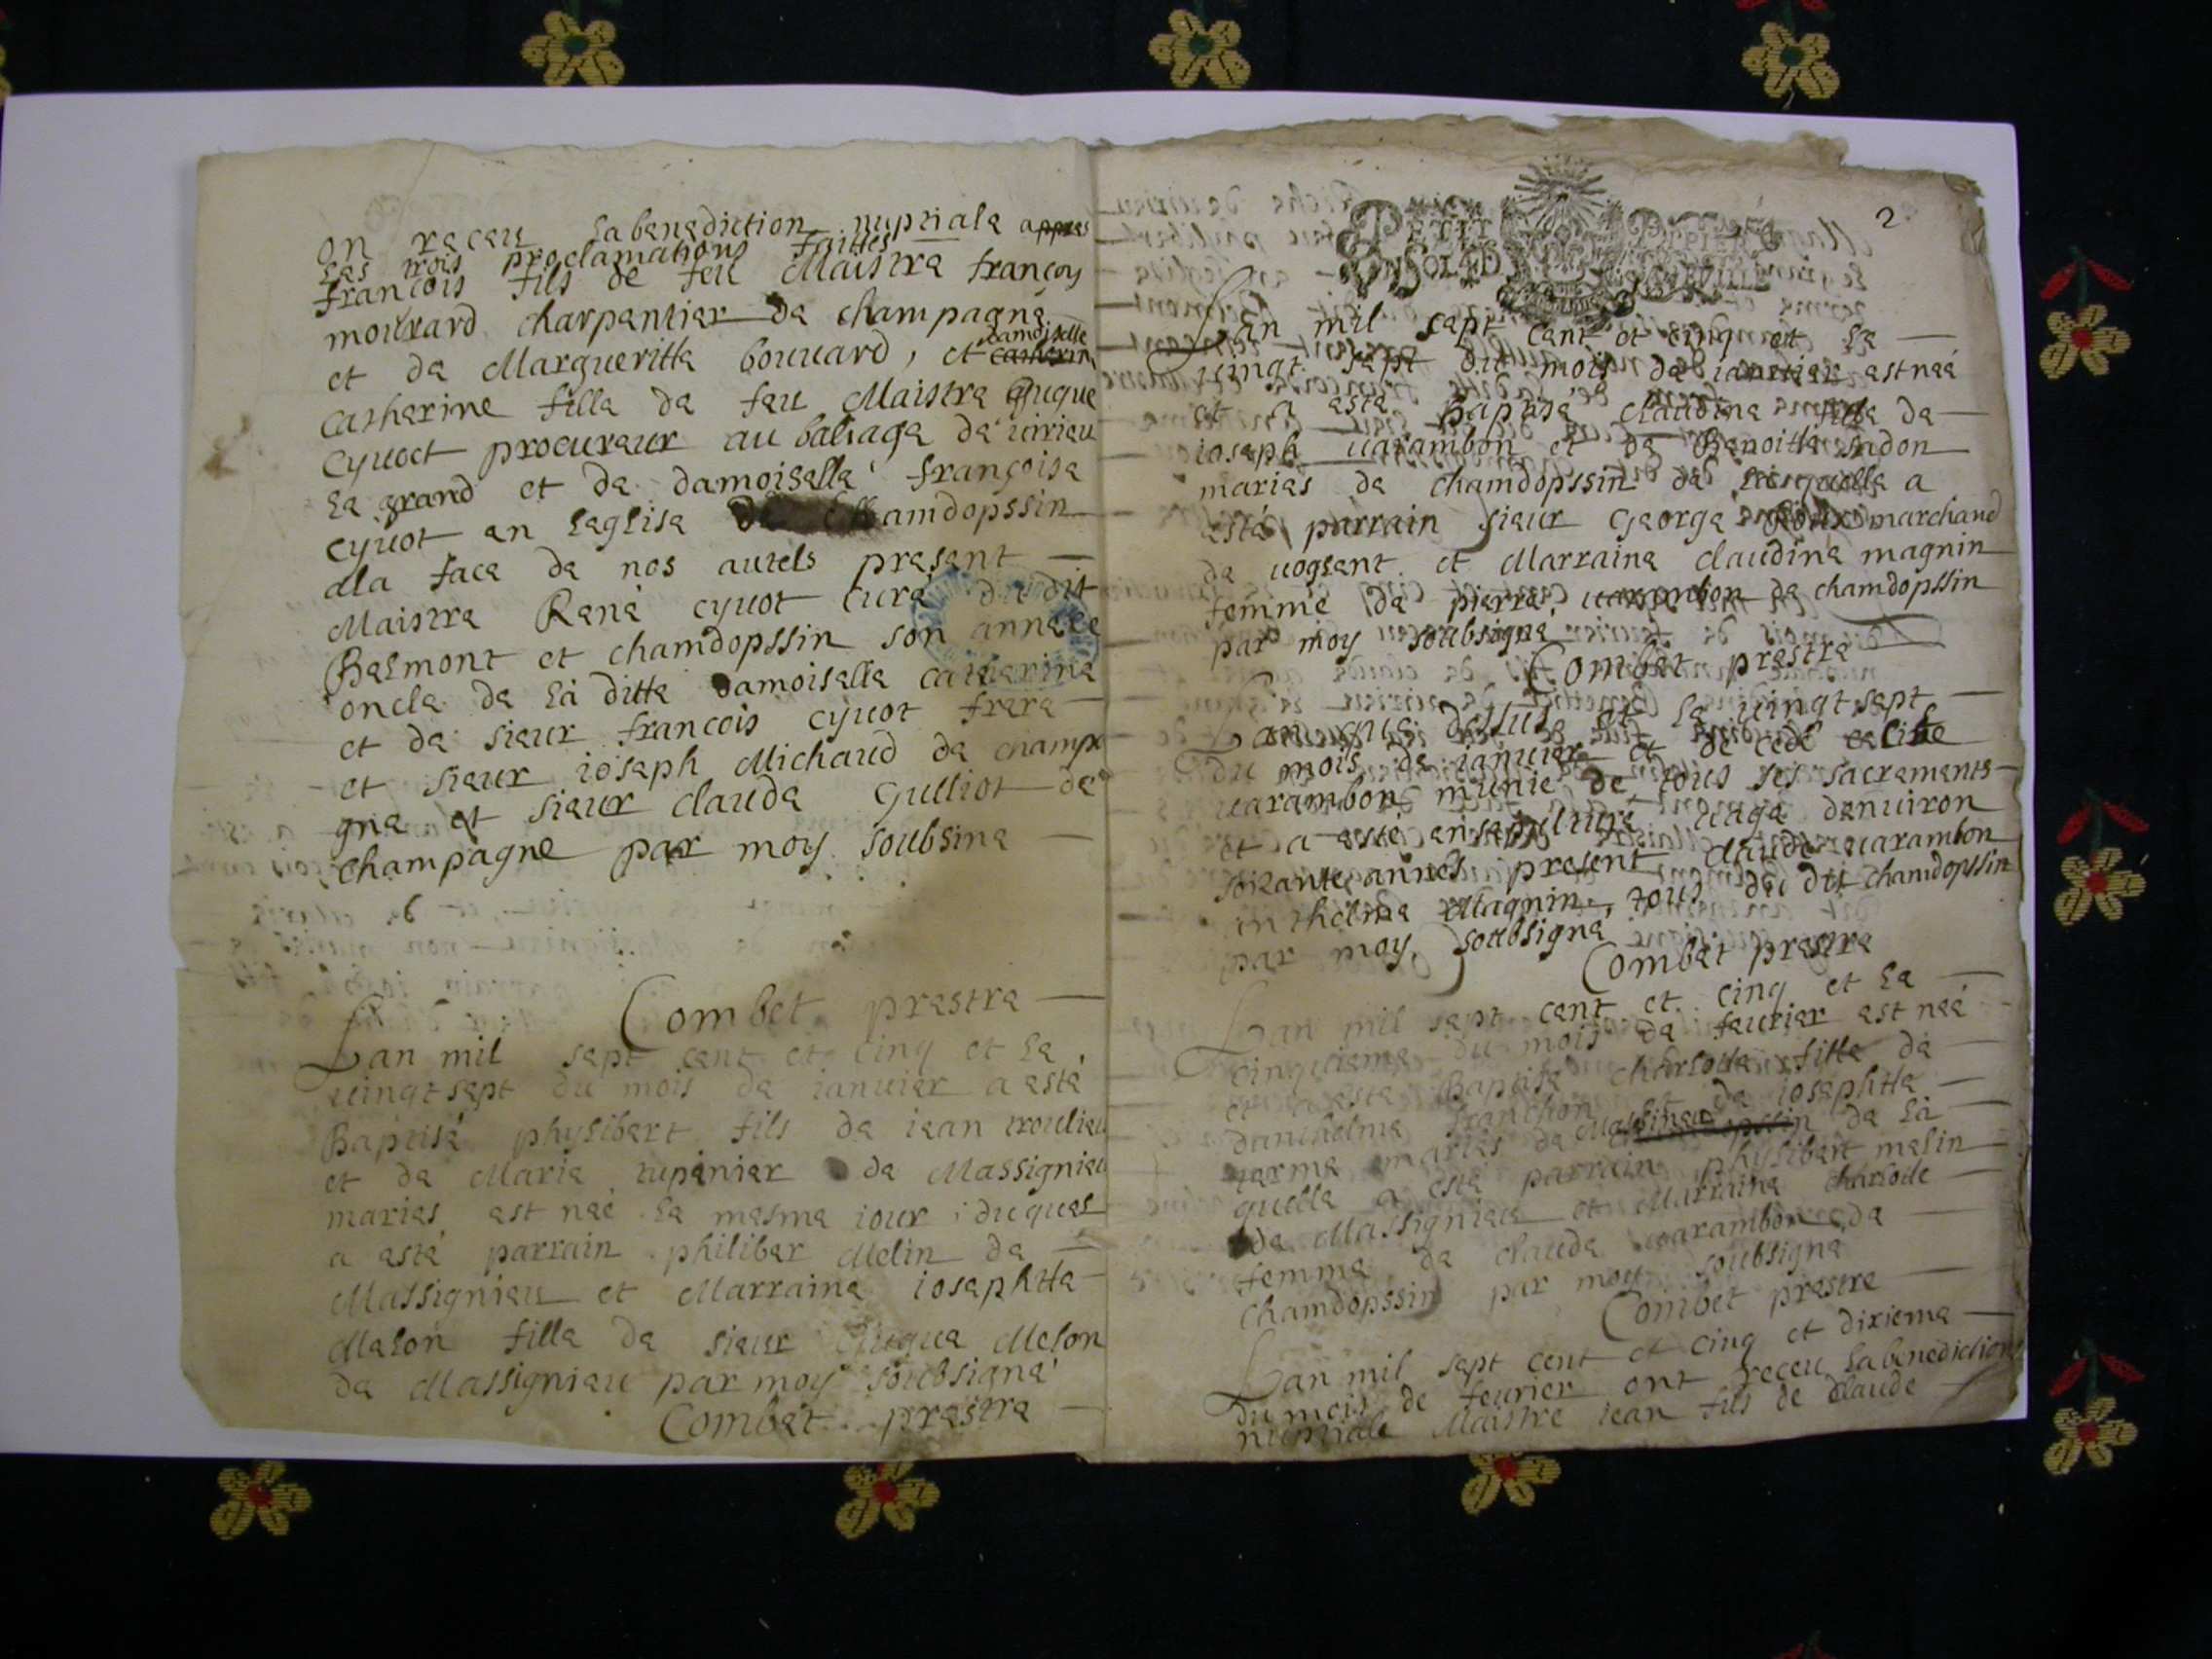 on raceu la benediction nuptiale appres
les trois proclamations faittes
francois fils de feu Maistre françoy
mourard charpentier de champagne
et de Margueritte bouuard, et damoiselle catherin
catherine fille de feu Maistre
cyuoct procureur au baliage de uirieu
le grand et de damoiselle françoise
cyuot en leglise de chamdopssin
ala face de nos autels present
Maistre René cyuot curé du dit
Belmont et chamdopssin son annexe
oncle de la ditte damoiselle catharine
et de sieur francois cyuot frere
et sieur ioseph Michaud de champa
gne et sieur claude Gulliot de
champagne par moy soubsine
Combet prestre
Lan mil sept cent et cinq et le
uingt sept du mois de ianuier a esté
Baptisé phylibert fils de iean trouliau
et de Marie tupinier de Massignieu
mariés est né le mesme iour duquel
a esté parrain philiber Melin de
Massignieu et Marraine iosephtte
Melon fille de sieur Melon
de Massignieu par moy soubsigné
Combet prestre
2
PETIT
Lan mil sept cent et cinq et le
uingt sept du mois de ianuier est neé
et a esté Baptisé claudine fille de
ioseph uarambon et de Benoitte
mariés de chamdopssin de laquelle a
esté parrain sieur George Roux marchand
de uogland et Marraine claudine magnin
femme de pierre uarambon de chamdopssin
par moy soubsigné
Combet prestre
Lan que dessus et le uingt sept
du mois de ianuier et de cede
uarambon munie de tous ses sacrements
et a esté ensepulturé danuiron
soixante années present claude uarambon
anthelme Magnin, tous du dit chamdopssin
par moy soubsigné
Combet prestre
Lan mil sept cent et cinq et le
cinquieme du mois de feurier est neé
et a esté Baptisé charlotte fille de
danthelme franchon et de iosephtte
mariés de Massinieu de la
quelle a esté parrain phylibert melin
de Massignieu et Marraine charlotte
femme de claude uarambon de
chamdopssin par moy soubsigné
Combet prestre
Lan mil sept cent et cinq et dixieme
du mois de feurier ont receu la benediction
nuptiale Maistre iean fils de claude